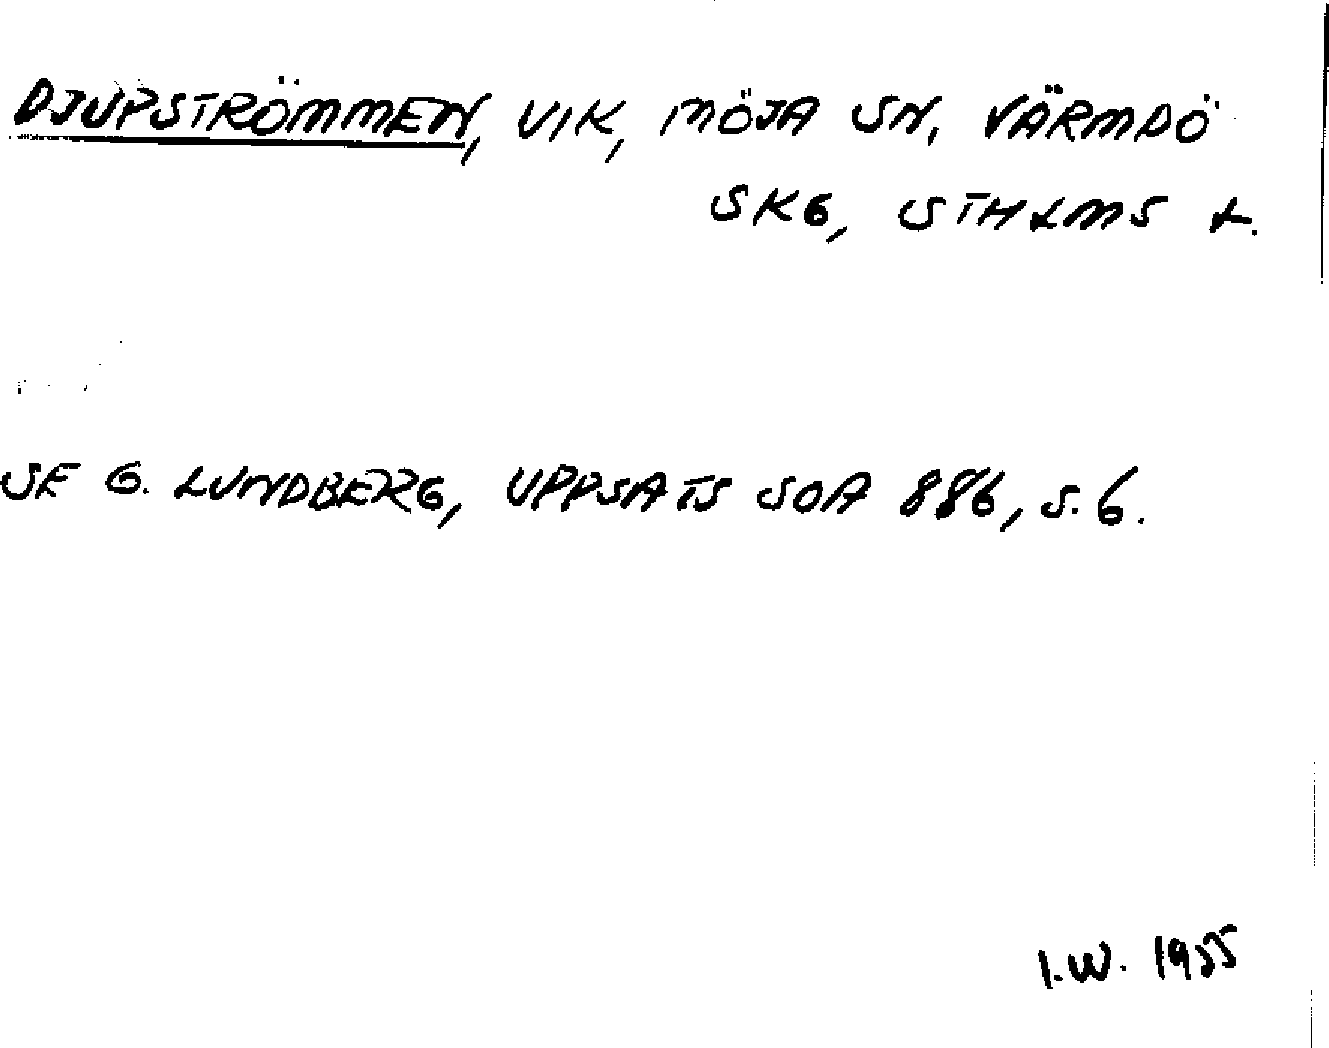 DJUPSTRÖMMEN, VIK, MÖJA SN, VÄRMDÖ
SKG, STHLMS L.
SE G. LUNDBERG, UPPSATS SOA 886, S. 6.
I.W. 1955